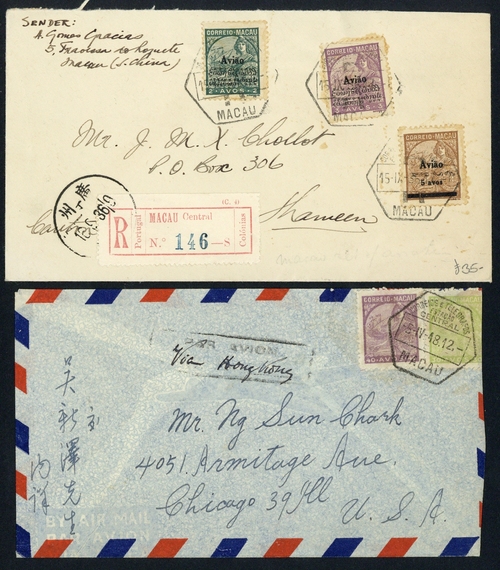 SENDER:
A. Gomes Gracias
Macau (S. China)
CORREIO·MACAU
Avião
2 AVOS
MACAU
CORREIO·MACAU
Avião
AVOS
MACAU
Avião
5 avos
15-IX-
MACAU
Mr. J. M. X. Chollot
P.O. Box 306
Shameen
廣州
R
Portugal
MACAU Central
N.º 146-S
Colónias
$35-
CORREIO·MACAU
40 AVOS
CENTRAL
MACAU
PAR AVION
Via Hong Kong
吳新澤先生
Mr. Ng Sun Chark
4051 Armitage Ave.
Chicago 39 Ill
U. S. A.
BY AIR MAIL
PAR AVION